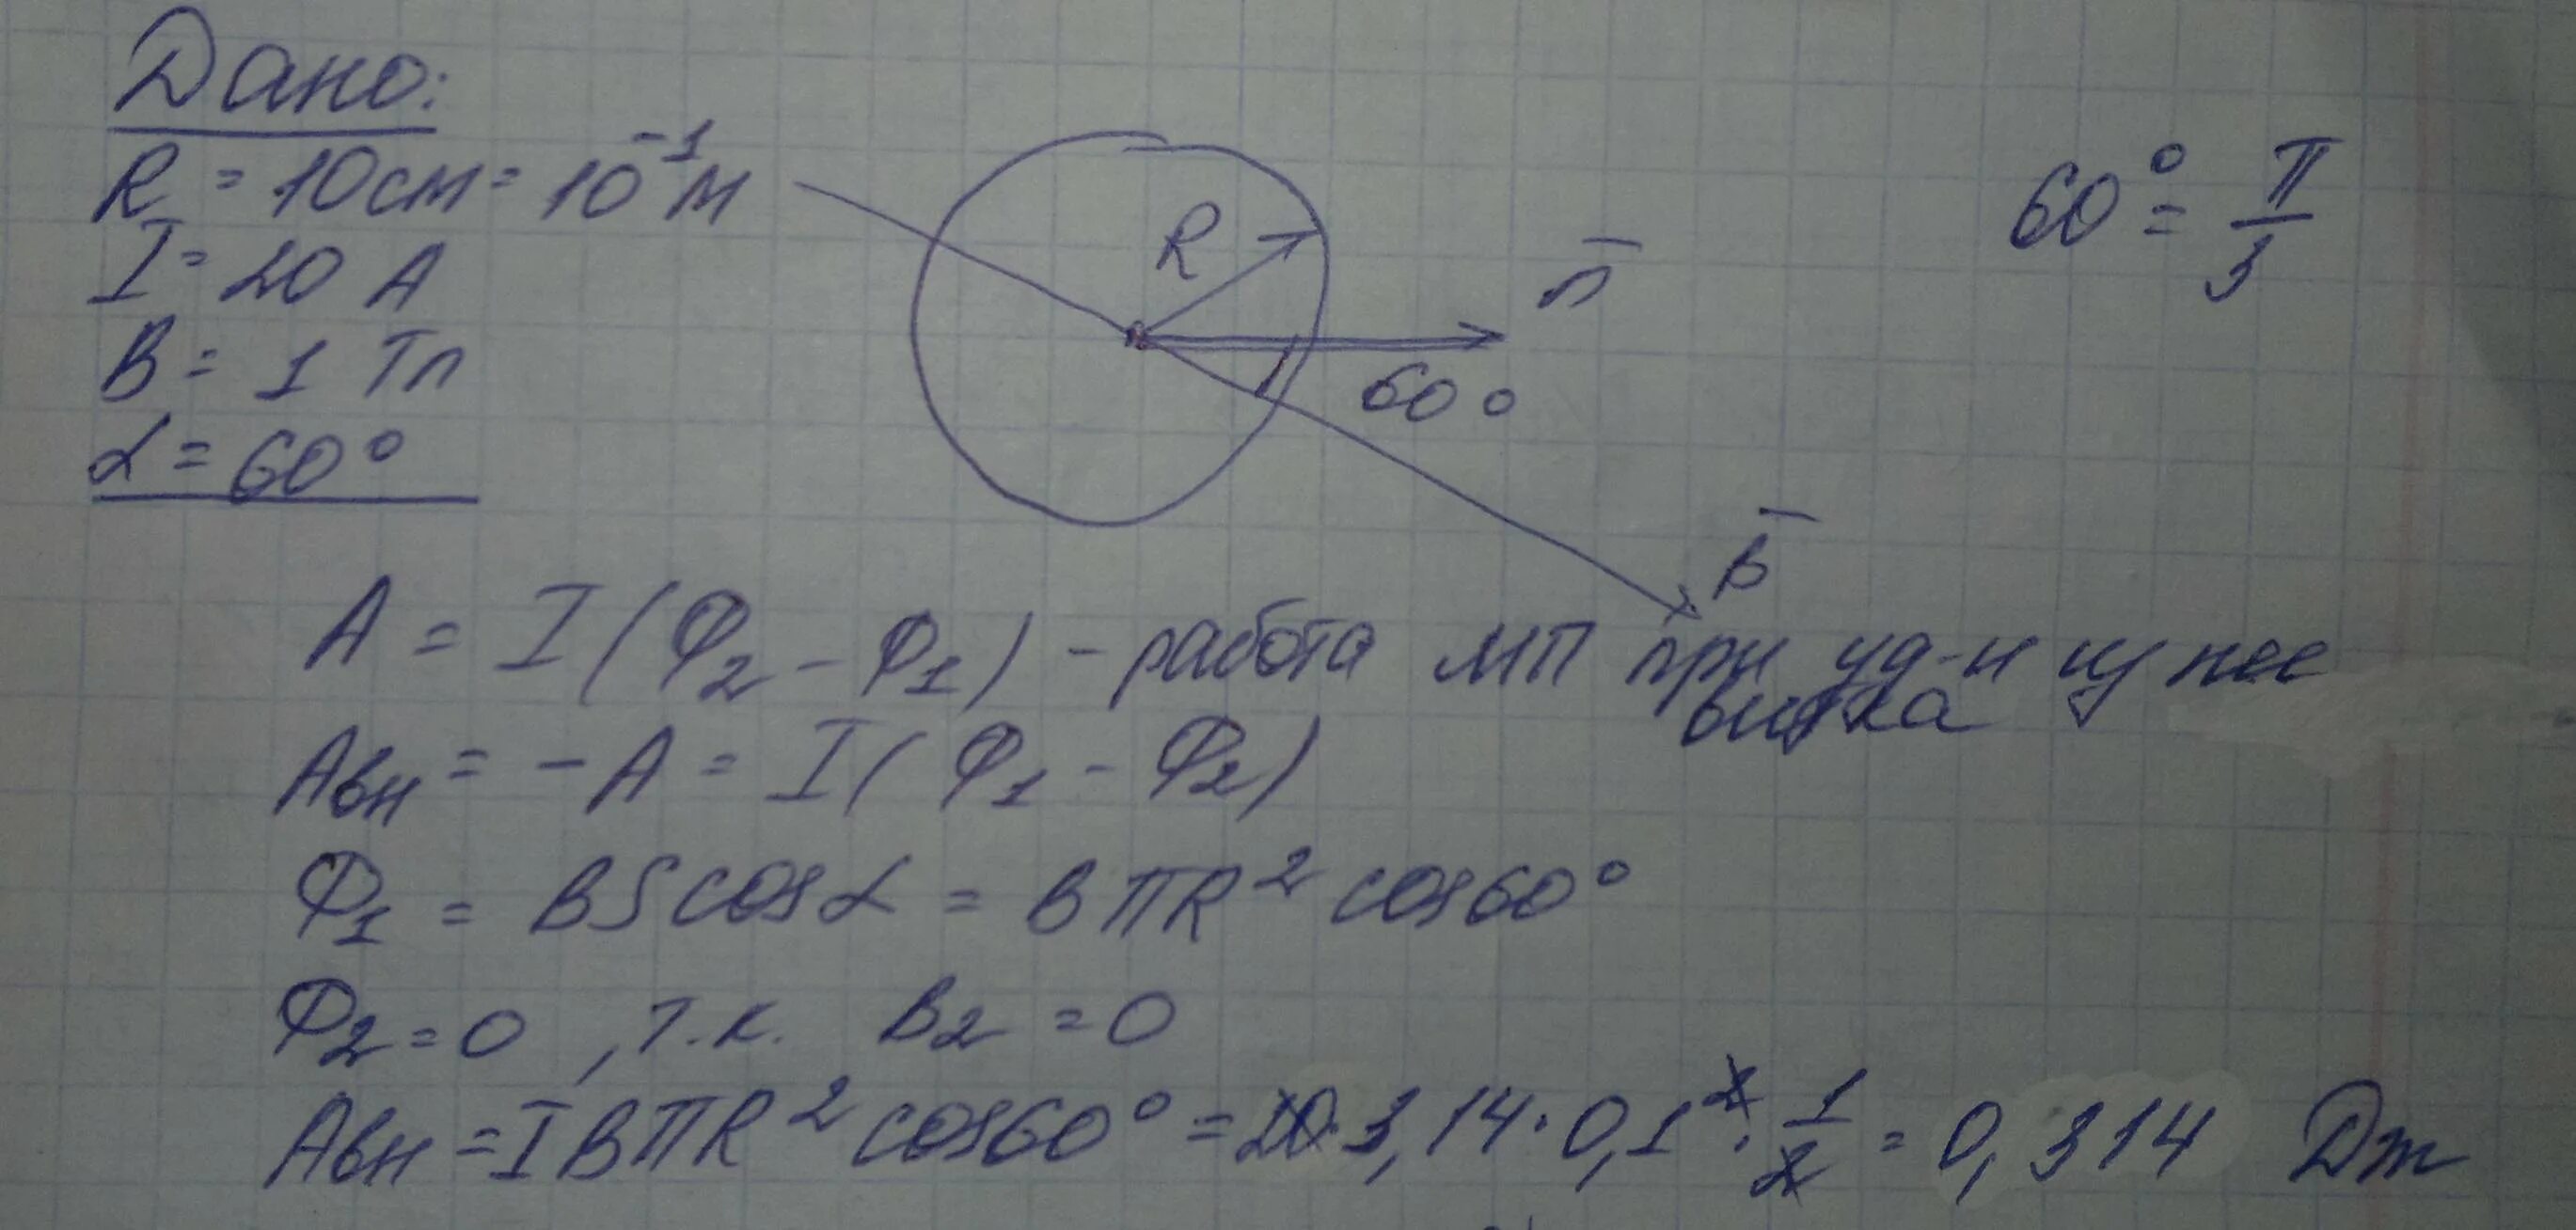 Дано:
R = 10см = 10⁻¹ м
I = 20 А
B = 1 Тл
α = 60°
R
n̅
60°
B̅
60° = π/3
A = I(Ф₂ - Ф₁) - работа МП при уд-и из нее
витка
Aвн = -A = I(Ф₁ - Ф₂)
Ф₁ = BScosα = BπR² cos60°
Ф₂ = 0, т.к. B₂ = 0
Aвн = IBπR² cos60° = 20·3,14·0,1²·1/2 = 0,314 Дж